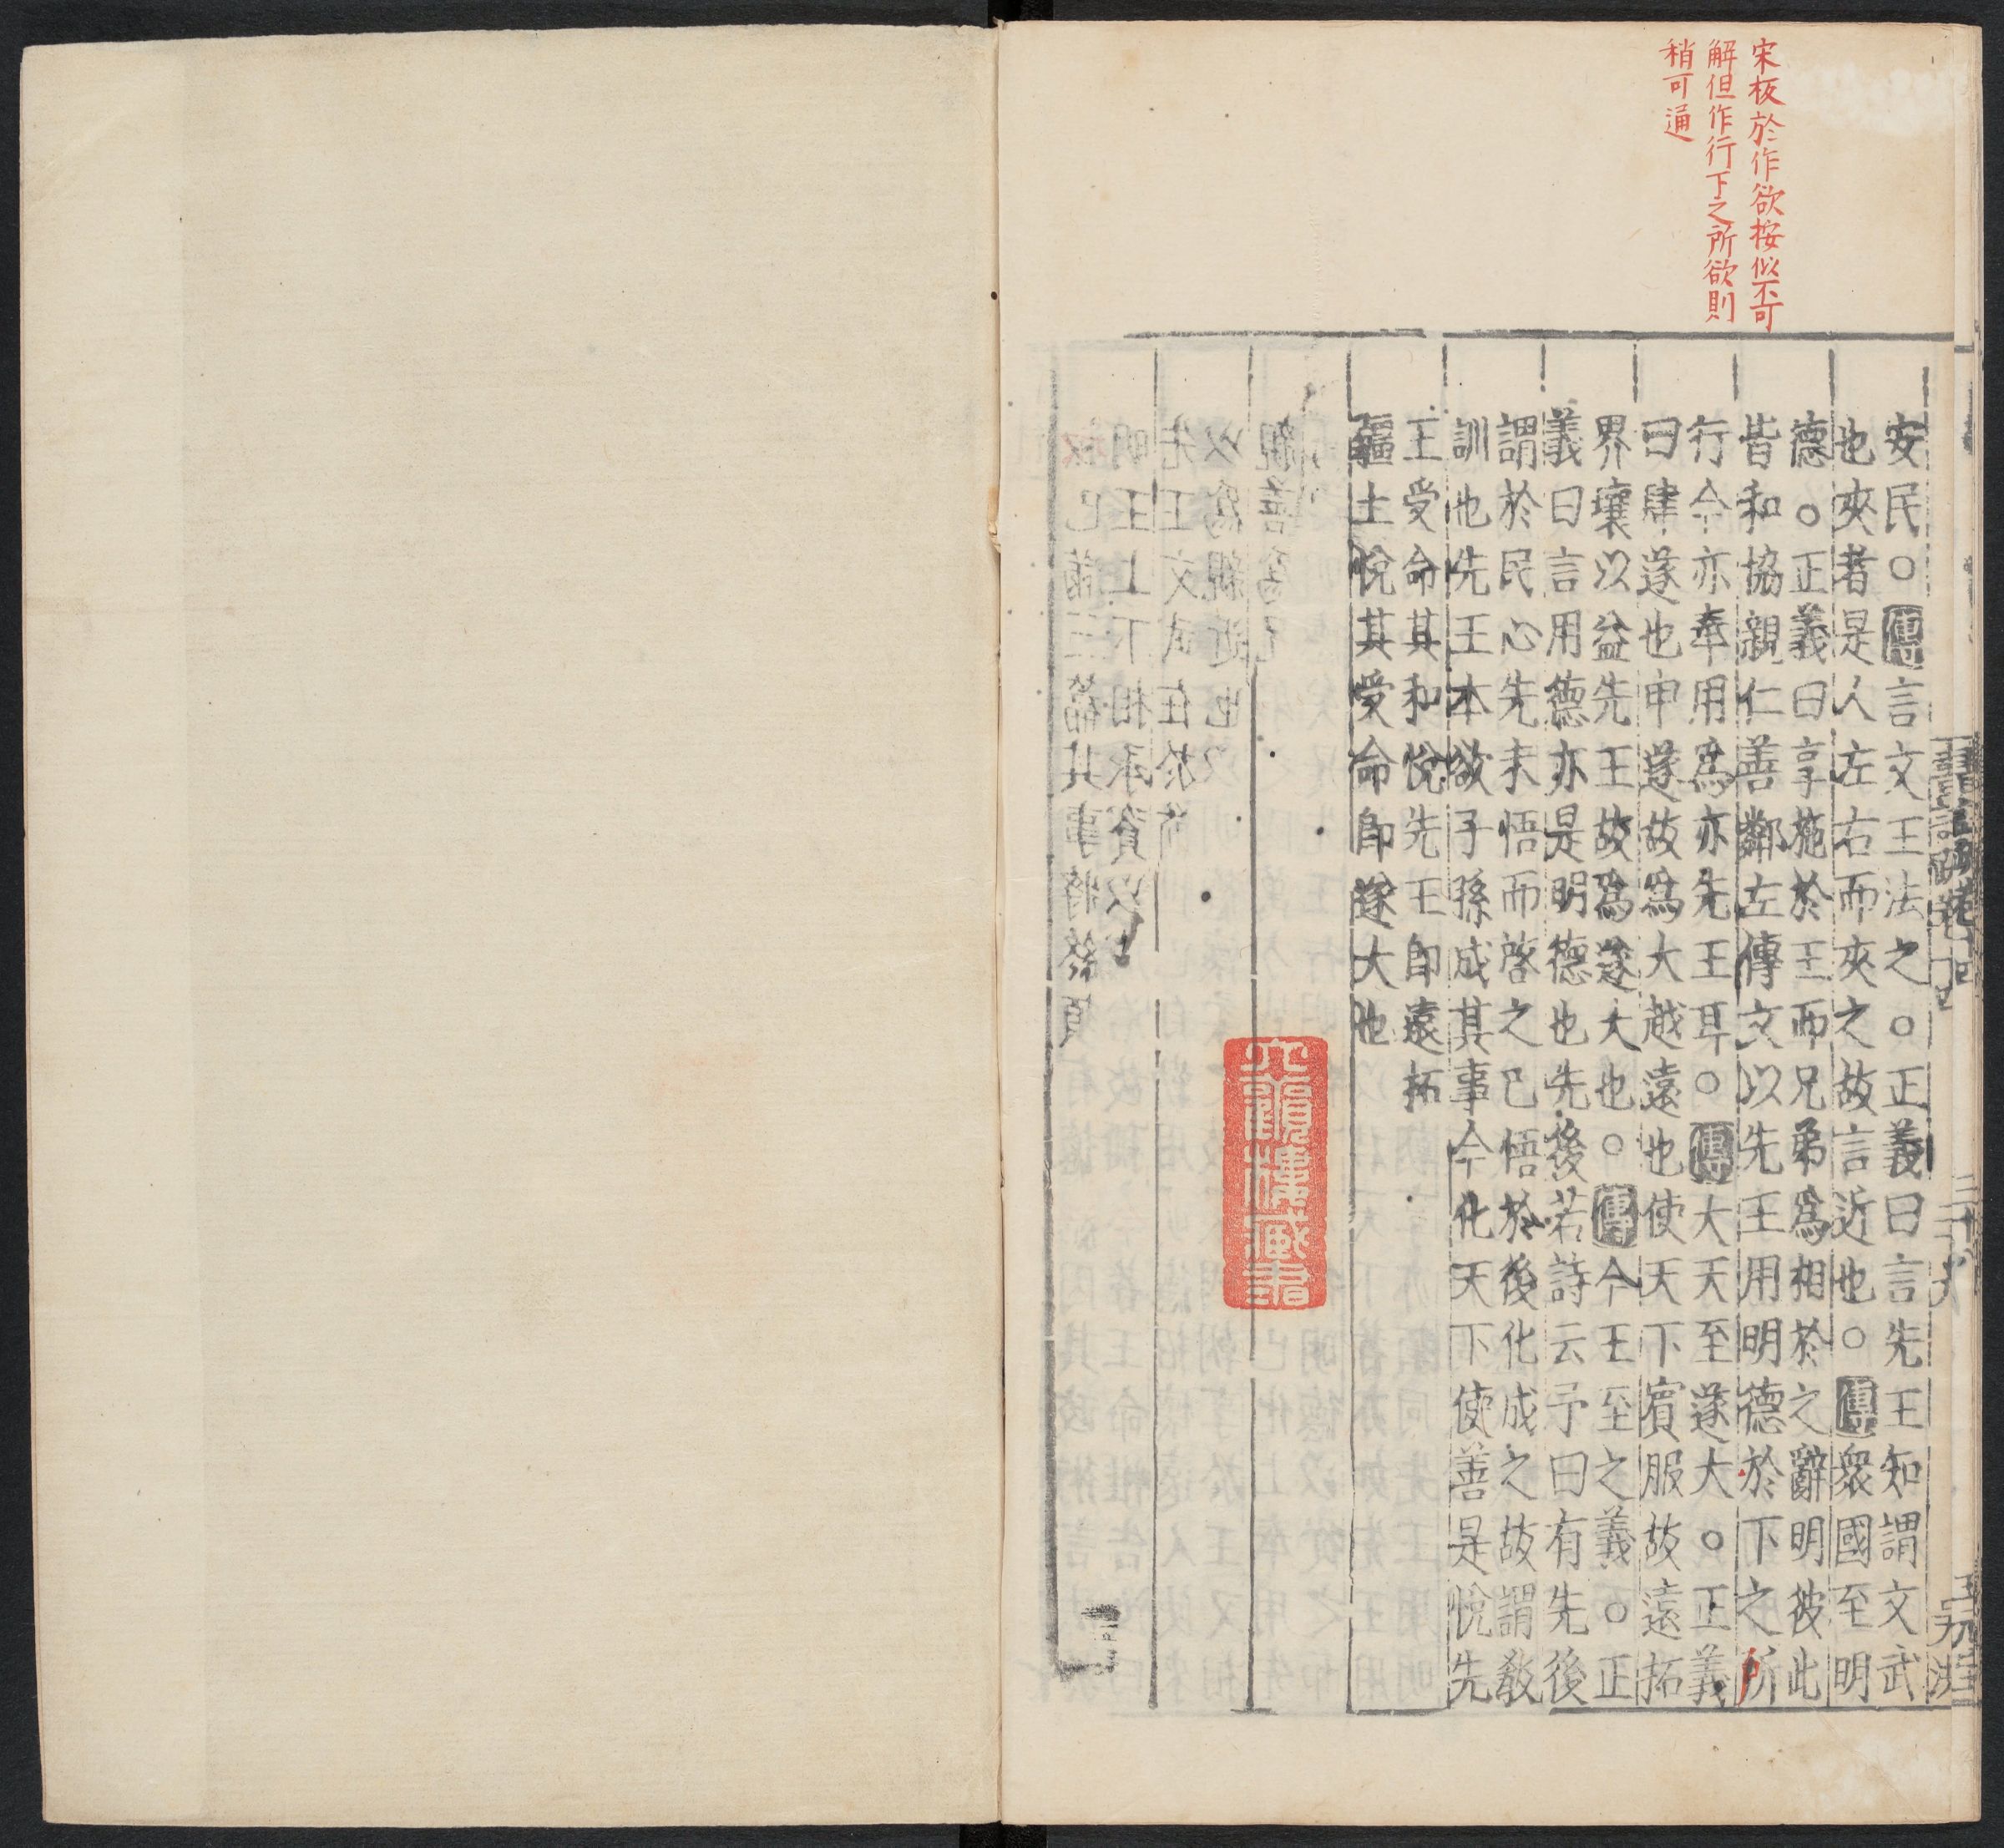 宋板於作欲按似不可
解但作行下之所欲則
稍可通
安民○傳言文王法之○正義曰言先王知謂文武
也夾者是人左右而夾之故言近也○傳衆國至明
德○正義曰享施於王而兄弟爲相於之辭明彼此
皆和協親仁善鄰左傳文以先王用明德於下之所
行今亦奉用爲亦先王耳○傳大天至遂大○正義
曰肆遂也申遂故爲大越遠也使天下賓服故遠拓
界壤以益先王故爲遂大也○傳今王至之義○正
義曰言用德亦是明德也先後若詩云予曰有先後
謂於民心先未悟而啓之已悟於後化成之故謂敎
訓也先王本欲子孫成其事今化天下使善是悅先
王受命其和悅先王即遠拓
疆土悅其受命即遂大也
六龍樓藏書